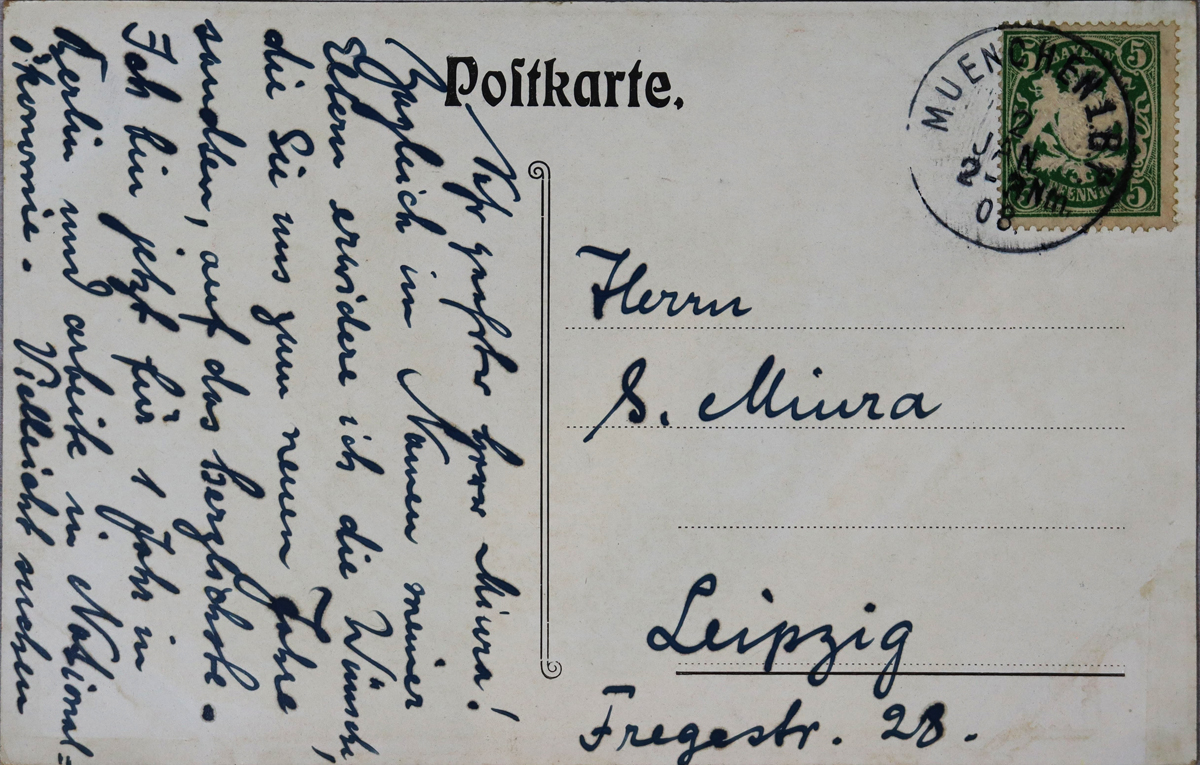 Postkarte.
MUENCHEN 1. B.
2 JAN
Nm.
08
5 BAYERN 5
5 PFENNIG 5
Herrn
S. Miura
Leipzig
Fregestr. 28.
Sehr geehrter Herr Miura!
Zugleich im Namen meiner
Eltern erwidere ich die Wünsche,
die Sie uns zum neuen Jahre
sandten, auf das herzlichste.
Ich bin jetzt für 1 Jahr in
Berlin und arbeite in National=
ökonomie. Vielleicht suchen